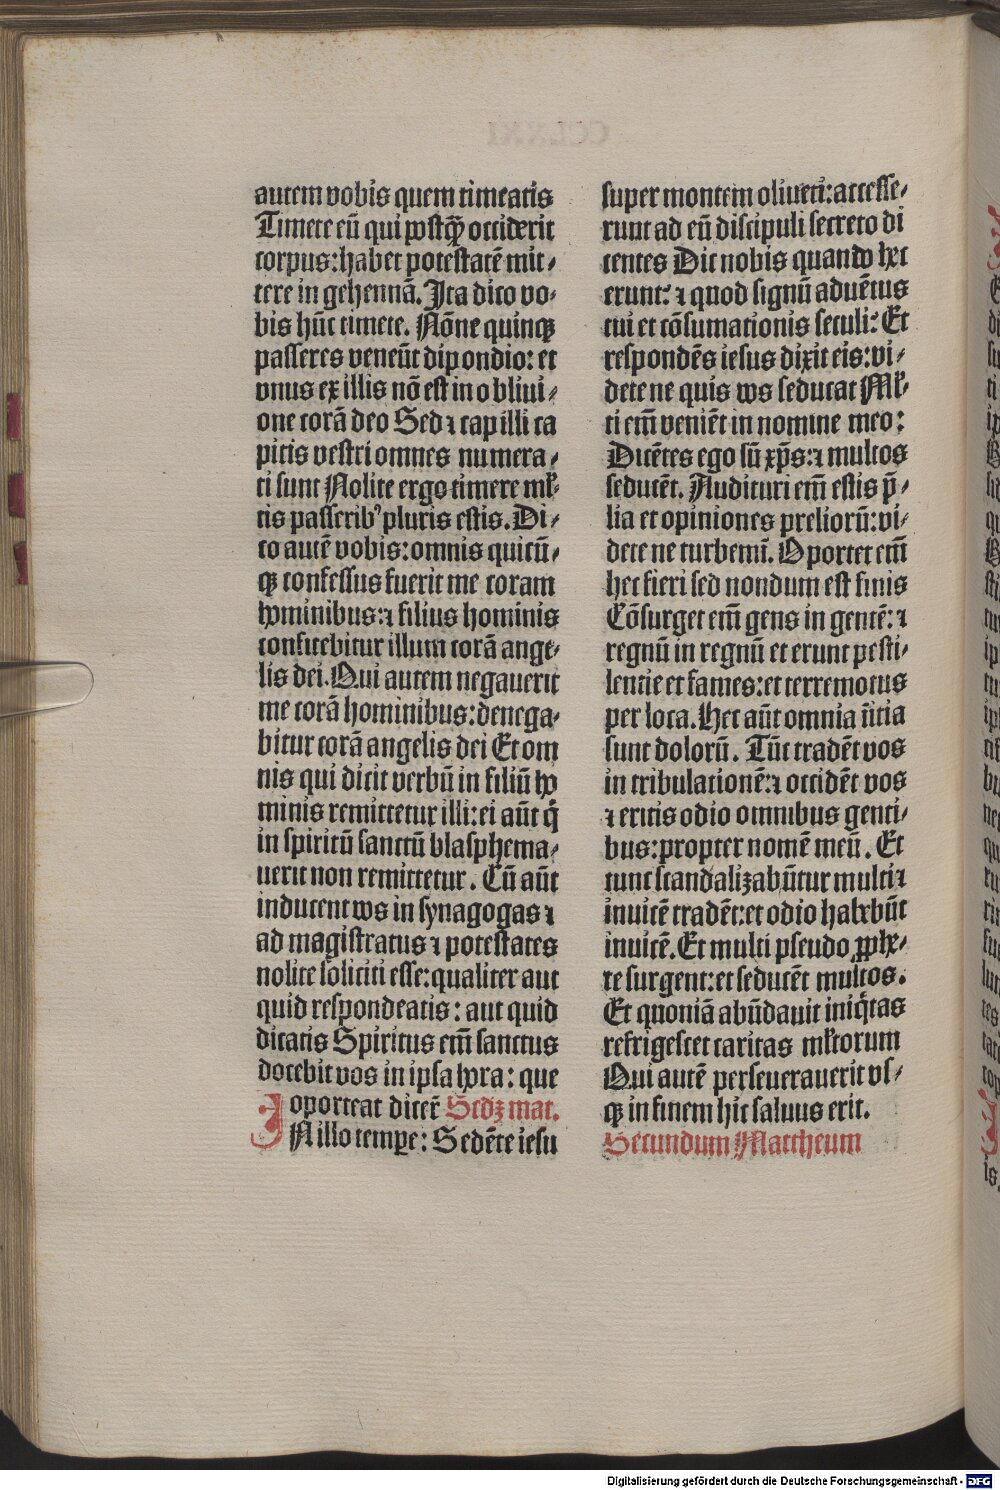 autem vobis quem timeatis
Timete eū qui postꝗ̄ occiderit
corpus: habet potestatē mit⸗
tere in gehennā. Ita dico vo⸗
bis hūc timete. Nōne quinqꝫ
passeres veneūt dipondio: et
vnus ex illis nō est in oblivi⸗
one corā deo Sed ⁊ capilli ca
pitis vestri omnes numera⸗
ti sunt Nolite ergo timere ml̄⸗
tis passeribꝰ pluris estis. Di⸗
co autē vobis: omnis quicū⸗
qꝫ confessus fuerit me coram
hominibus: ⁊ filius hominis
confitebitur illum corā ange⸗
lis dei. Qui autem negauerit
me corā hominibus: denega⸗
bitur corā angelis dei Et om
nis qui dicit verbū in filiū ho
minis remittetur illi: ei aūt q̄
in spiritū sanctū blasphema⸗
uerit non remittetur. Cū aūt
inducent vos in synagogas ⁊
ad magistratus ⁊ potestates
nolite soliciti esse: qualiter aut
quid respondeatis: aut quid
dicatis Spiritus em̄ sanctus
docebit vos in ipsa hora: que
oporteat dicer̄ Secdꝫ mat.
IN illo tempꝑe: Sedēte iesu
super montem oliueti: accesse⸗
runt ad eū discipuli secreto di
centes Dic nobis quando hec
erunt: ⁊ quod signū aduētus
tui et cōsumationis seculi: Et
respondēs iesus dixit eis: vi⸗
dete ne quis vos seducat Ml̄⸗
ti em̄ veniēt in nomine meo:
Dicētes ego sū xp̄s: ⁊ multos
seducēt. Audituri em̄ estis p̄⸗
lia et opiniones preliorū: vi⸗
dete ne turbemī. Oportet em̄
hec fieri sed nondum est finis
Cōsurget em̄ gens in gentē: ⁊
regnū in regnū et erunt pesti⸗
lentie et fames: et terremotus
per loca. Hec aūt omnia īitia
sunt dolorū. Tūc tradēt vos
in tribulationē: ⁊ occidēt vos
⁊ eritis odio omnibus genti⸗
bus: propter nomē meū. Et
tunc scandalizabūtur multi ⁊
inuicē tradēt: et odio habebūt
inuicē. Et multi pseudo ꝓphe⸗
te surgent: et seducēt multos.
Et quoniā abūdauit iniq̄tas
refrigescet caritas ml̄torum
Qui autē perseuerauerit vs⸗
qꝫ in finem hic saluus erit.
Secundum Mattheum
Digitalisierung gefördert durch die Deutsche Forschungsgemeinschaft - DFG